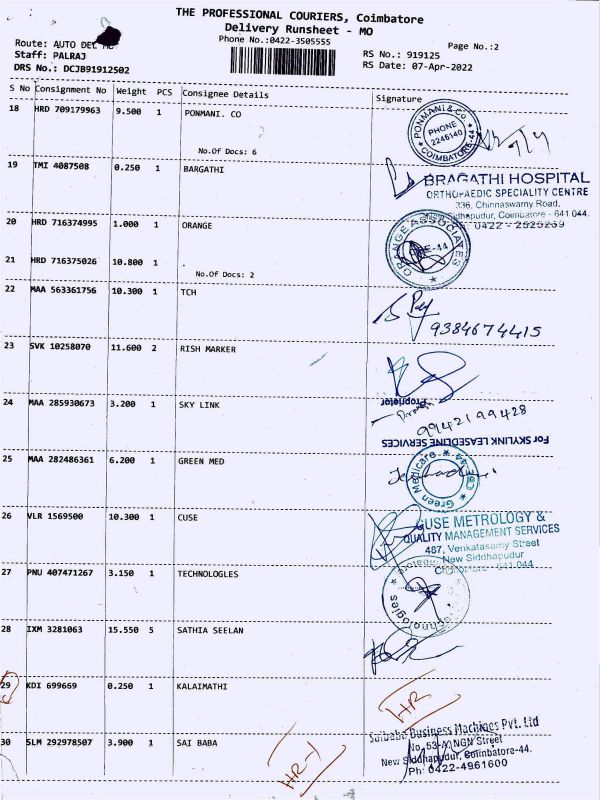 THE PROFESSIONAL COURIERS, Coimbatore
Delivery Runsheet - MO
Phone No.:0422-3505555
Page No.:2
Route: AUTO DEL
Staff: PALRAJ
DRS No.: DCJB91912502
RS No.: 919125
RS Date: 07-Apr-2022
S No Consignment No Weight PCS Consignee Details Signature
18 HRD 709179963 9.500 1 PONMANI. CO
No.Of Docs: 6
PONMANI & CO.
PHONE
2246140
COIMBATORE-44
19 TMI 4087508 0.250 1 BARGATHI
BRAGATHI HOSPITAL
ORTHOPAEDIC SPECIALITY CENTRE
336, Chinnaswamy Road,
Sidhapudur, Coimbatore - 641 044.
0422 - 2525259
20 HRD 716374995 1.000 1 ORANGE
ORANGE ASSOCIATES
CBE-44
21 HRD 716375026 10.800 1 .
No.Of Docs: 2
22 MAA 563361756 10.300 1 TCH
9384674415
23 SVK 10258070 11.600 2 RISH MARKER
Proprietor
24 MAA 285930673 3.200 1 SKY LINK
9942199428
For SKYLINK LEASEDLINE SERVICES
25 MAA 282486361 6.200 1 GREEN MED
Green Medicare
CBE-44
26 VLR 1569500 10.300 1 CUSE
CUSE METROLOGY &
QUALITY MANAGEMENT SERVICES
487, Venkatasamy Street
New Siddhapudur
Coimbatore - 641 044
27 PNU 407471267 3.150 1 TECHNOLOGLES
Technologies
28 IXM 3281063 15.550 5 SATHIA SEELAN
29 KDI 699669 0.250 1 KALAIMATHI
HR
30 SLM 292978507 3.900 1 SAI BABA
HR-1
Saibaba Business Machines Pvt. Ltd
No. 53-A, NGN Street
New Siddhapudur, Coimbatore-44.
Ph: 0422-4961600